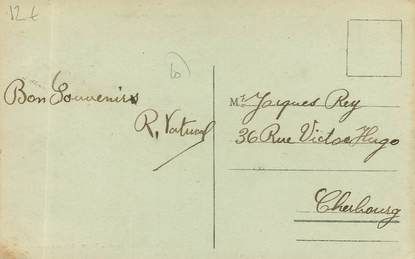 12 €
Bon Souvenirs
R.
Mr. Jacques Rey
36 Rue Victor Hugo
Cherbourg